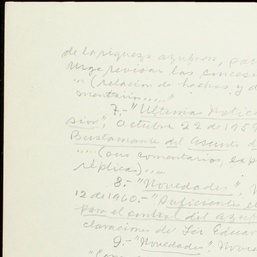 de la riqueza azufrera, pac
Urge revisar las conces
... (relación de hechos, y d
mentario....."
7.- "Ultimas Notic
sin", octubre 22 de 1969
Bustamante del Asunto d
.....(sus comentarios, exp
réplicas)...
8.- "Novedades", N
12 de 1960.- "Suficientes el
para el control del azuf
claraciones de Lic Eduar
9.- "Novedades", Novie